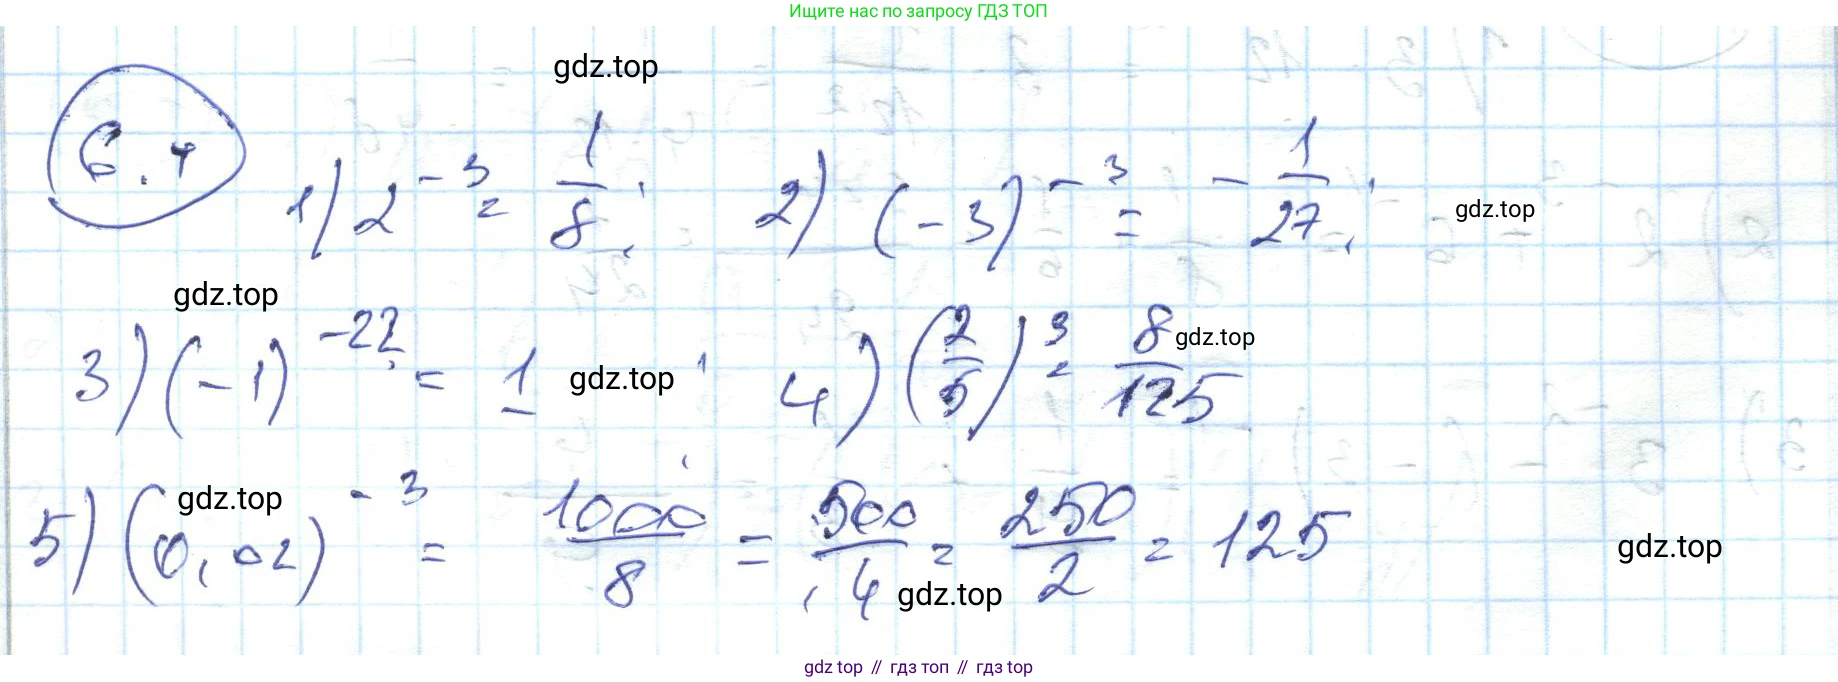 Ищите нас по запросу ГДЗ ТОП
gdz.top
6.4 1) 2^{-3} = 1/8; 2) (-3)^{-3} = -1/27; gdz.top
gdz.top
3) (-1)^{-22} = 1 gdz.top 4) (2/5)^3 = 8/125 gdz.top
5) (0,02)^{-3} = 1000/8 = 500/4 = 250/2 = 125
gdz.top
gdz.top gdz.top
gdz top // гдз топ // гдз top